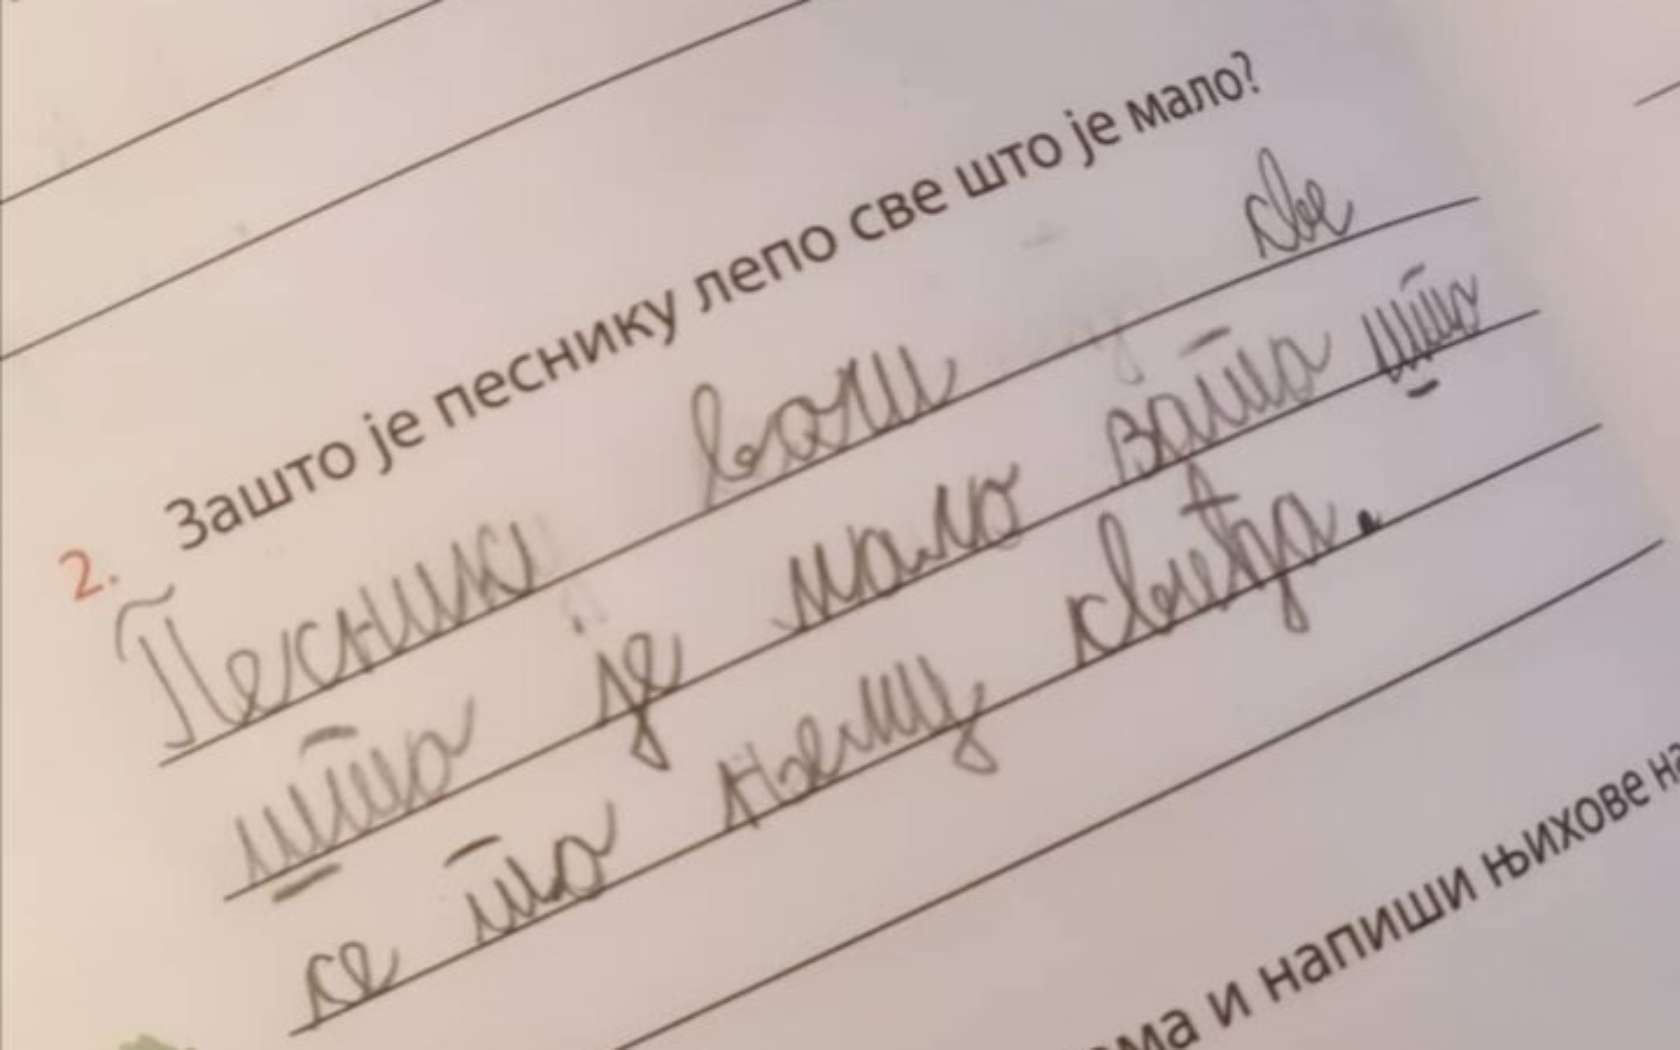 2. Зашто је песнику лепо све што је мало?
Песник воли све
што је мало зато што
се то њему свиђа.
и напиши њихове